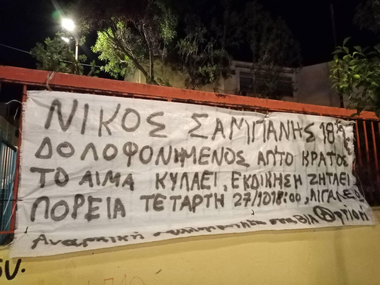 ΝΙΚΟΣ ΣΑΜΠΑΝΗΣ 18
ΔΟΛΟΦΟΝΗΜΕΝΟΣ ΑΠΤΟ ΚΡΑΤΟΣ
ΤΟ ΑΙΜΑ ΚΥΛΑΕΙ, ΕΚΔΙΚΗΣΗ ΖΗΤΑΕΙ
ΠΟΡΕΙΑ ΤΕΤΑΡΤΗ 27/10 18:00, ΑΙΓΑΛΕΩ
Αναρχική
συ.